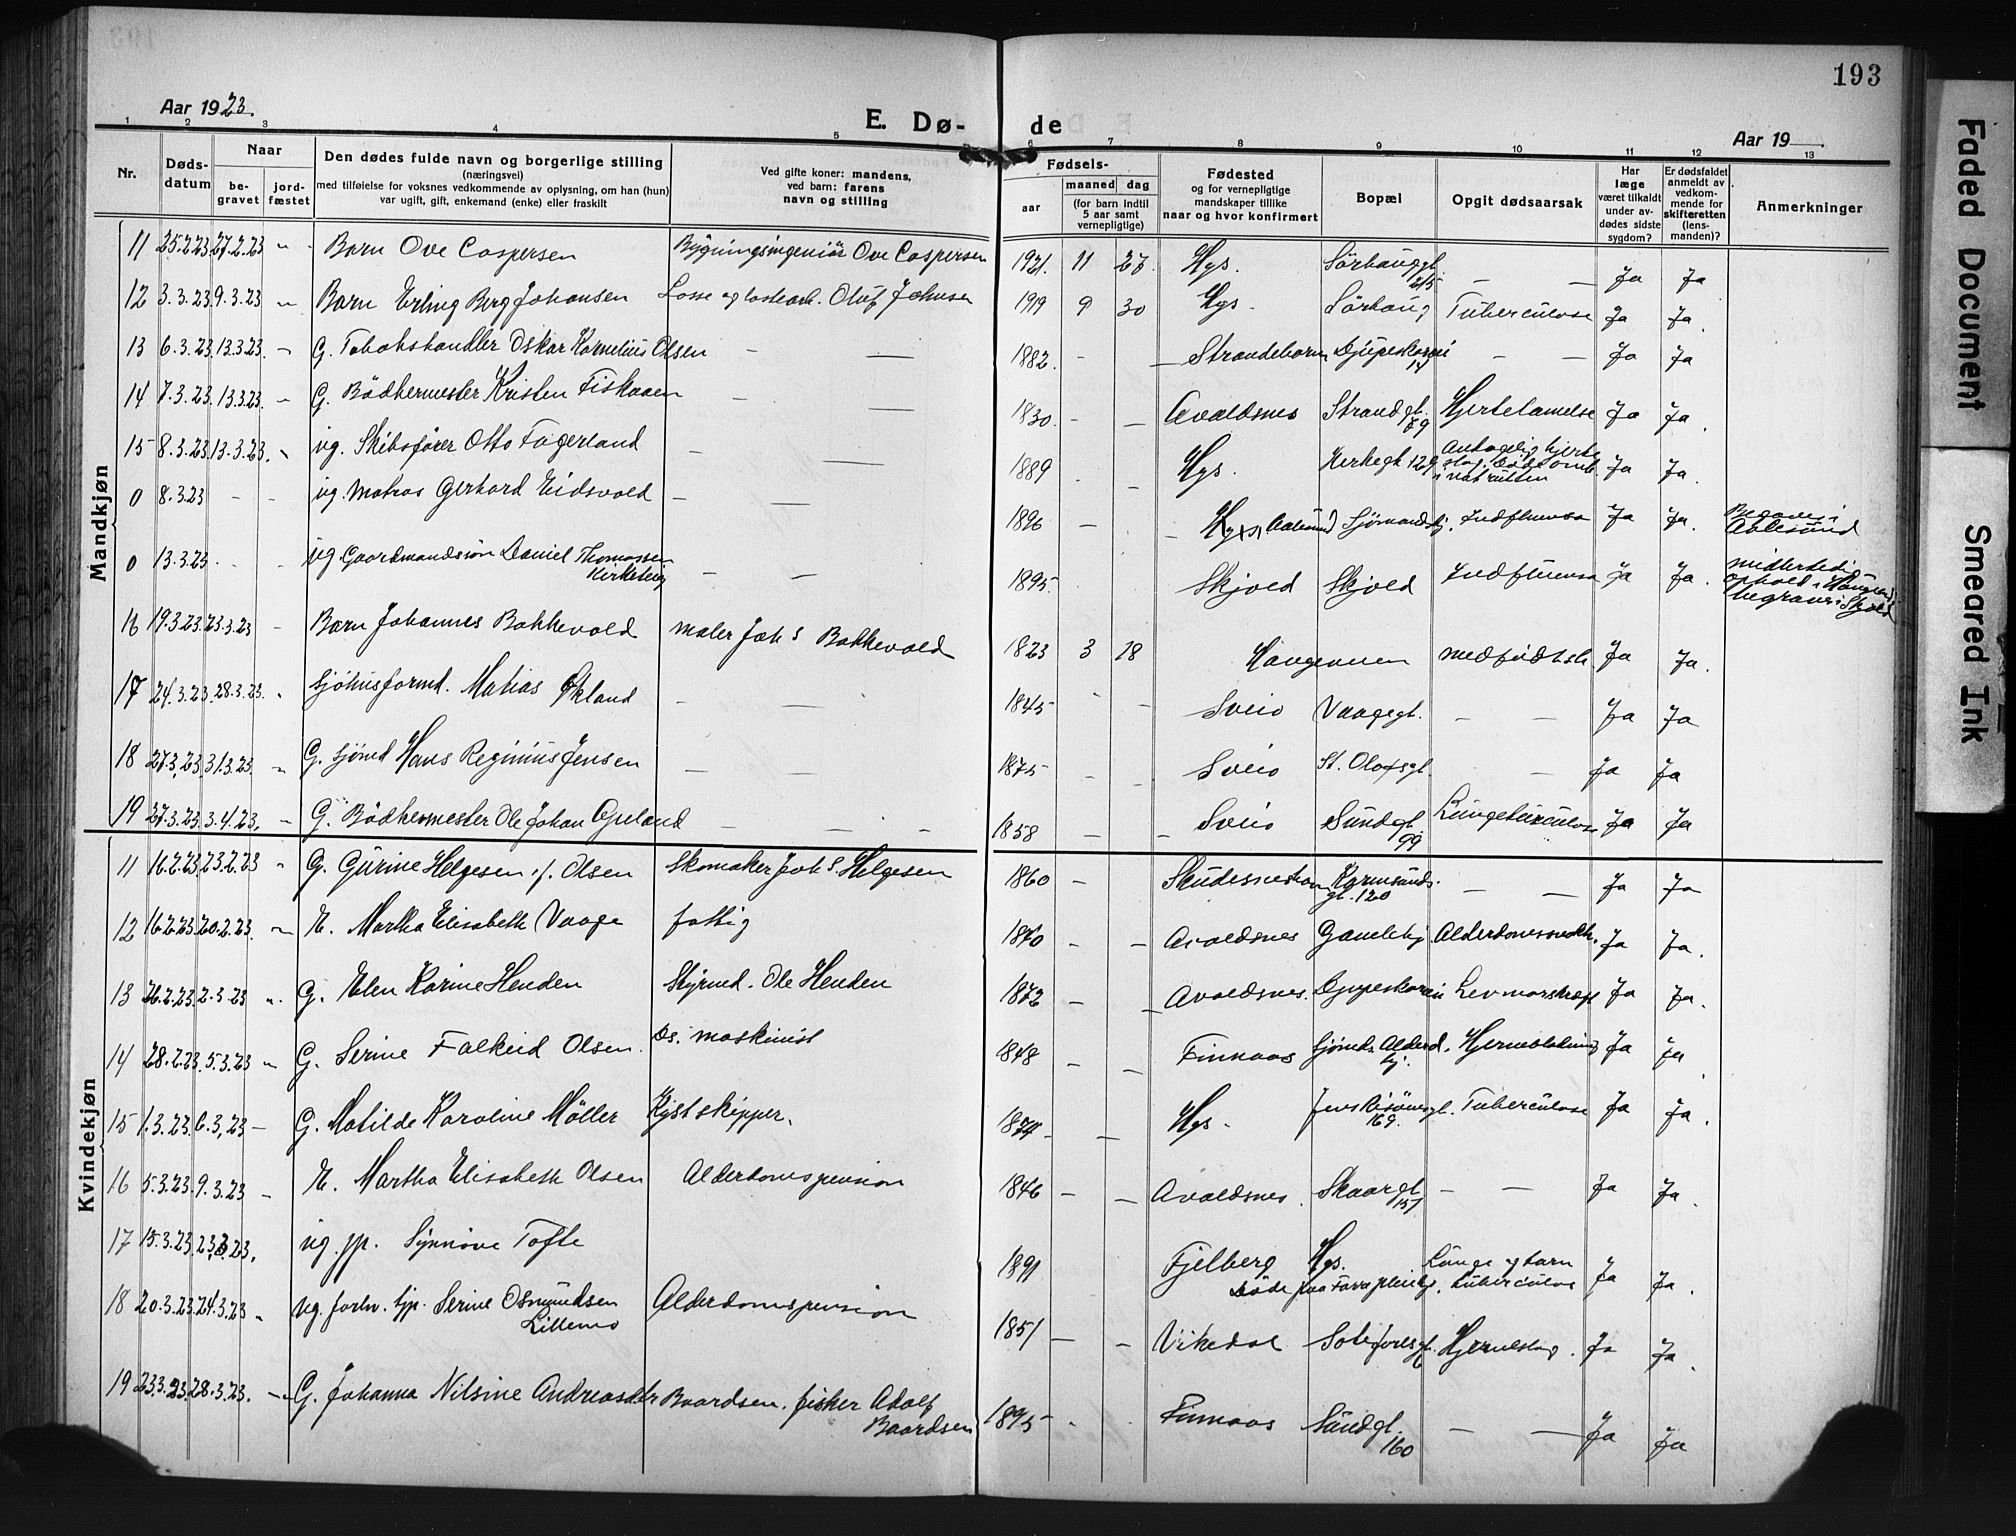 193
Aar 1923.
E. Dø- de
Aar 19
1 2 3 4 5 6 7 8 9 10 11 12 13
Nr.
Døds-
datum
Naar
be-
gravet
jord-
fæstet
Den dødes fulde navn og borgerlige stilling
(næringsvei)
med tilføielse for voksnes vedkommende av oplysning, om han (hun)
var ugift, gift, enkemand (enke) eller fraskilt
Ved gifte koner: mandens,
ved barn: farens
navn og stilling
Fødsels-
aar
maaned
dag
(for barn indtil
5 aar samt
vernepligtige)
Fødested
og for vernepligtige
mandskaper tillike
naar og hvor konfirmert
Bopæl
Opgit dødsaarsak
Har
læge
været tilkaldt
under av-
dødes sidste
sygdom?
Er dødsfaldet
anmeldt av
vedkom-
mende for
skifteretten
(lens-
manden)?
Anmerkninger
Mandkjøn
11 25.2.23 27.2.23 " Barn Ove Caspersen Bygningsingeniör Ove Caspersen 1921. 11 27. Hgs. Sörhauggt. 215 — — Ja Ja
12 3.3.23 9.3.23 " Barn Erling Berg Johansen Losse og lastearb. Oluf Johnsen 1919 9 30 Hgs. Sörhaug Tuberculose Ja Ja.
13 6.3.23. 13.3.23. " G. Tobakshandler Oskar Kornelius Olsen — — 1882. - — Strandebarm Djupeskarvei 14 — — Ja Ja
14 7.3.23. 13.3.23. " G. Bödkermester Kristen Fiskaaen — — 1830. - — Avaldsnes Strandgt. 79 Hjertelamelse Ja Ja.
15 8.3.23 13.3.23. " ug. Skibsfører Otto Fagerland — — 1889 - — Hgs. Kirkegt 129 Antagelig hjerte slag. Döde omb. i natrutten Ja Ja.
0 8.3.23 - - ug. Matros Gerhard Eidsvold — — 1896 - — Hgs. Aalesund Sjömandshj. Indfluensa Ja Ja. Begravet i Aalesund
0 13.3.23. - - ug. Gaardmandssön Daniel Thomassen Kirkeleig — — 1895. Skjold Skjold Indfluensa Ja Ja. midlertidig ophold i Haugesund begravet i Skjold
16 19.3.23. 23.3.23 - Barn Johannes Bakkevold maler Joh S Bakkevold 1823 3 18 Haugesund medfødt sk Ja Ja.
17 24.3.23. 28.3.23. " Sjöhusformd. Matias Økland — — 1845 - — Sveio Vaagegt. — — Ja Ja
18 27.3.23. 31.3.23. " G. Sjömd Hans Reginius Jensen — — 1875 - — Sveio St. Olafsgt. - — Ja Ja
19 27.3.23. 3.4.23. " G. Bödkermester Ole Johan Apeland — — - 1858 — — Sveio Sundgt. 99 Lungetuberculose Ja Ja
Kvindekjøn
11 16.2.23. 23.2.23 " G. Gurine Helgesen f. Olsen Skomaker Joh S. Helgesen 1860 — Skudeneshavn Karmsunds. gt. 120 — — Ja Ja
12 16.2.23. 20.2.23. " E. Martha Elisabeth Vaage fattig 1870 - — Avaldsnes Gamlehj Alderdomssvækk. Ja Ja.
13 26.2.23. 2.3.23 " G. Elen Karine Henden Styrmd. Ole Henden 1872 — — Avaldsnes. Djupeskarvei Levmarskræft Ja Ja.
14 28.2.23. 5.3.23 " G. Serine Falkeid Olsen. Ds. maskinist 1848 — — Finnaas Sjömds. Alderd. hj. Hjerneblödning Ja Ja
15 1.3.23. 6.3.23 — G. Matilde Karoline Möller Kystskipper. 1874. — Hgs. Jens Risöensgt. 169. Tuberculose Ja Ja.
16 5.3.23. 9.3.23 - E. Martha Elisabeth Olsen Alderdomspension 1846 — — Avaldsnes. Skaargt. 151 — — Ja Ja.
17 15.3.23 23.3.23. ug. pp. Synnöve Tofte 1891 Fjelberg Hgs. Lunge og tarm Ja Ja.
Döde paa Varapleiehj. tuberculose
18 20.3.23. 24.3.23 " ug. forhv. tjp. Serine Osmundsen Lillemo Alderdomspension 1851 — — Vikedal Hjerneslag. Ja Ja.
19 23.3.23. 28.3.23. — G. Johanna Nilsine Andreasdtr Baardsen. fisker Adolf Baardsen 1895 - Finnaas Sundgt. 160 — — Ja Ja
Faded Document
Smeared Ink